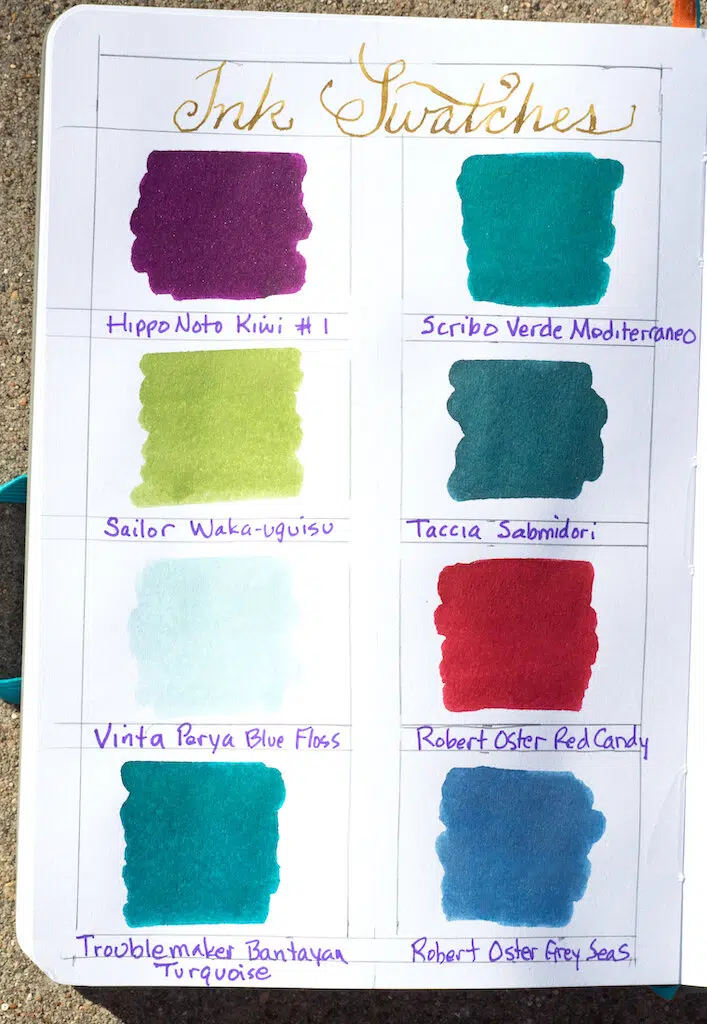 Ink Swatches
Hippo Noto Kiwi #1
Scribo Verde Mediterraneo
Sailor Waka-uguisu
Taccia Sabmidori
Vinta Perya Blue Floss
Robert Oster Red Candy
Troublemaker Bantayan
Turquoise
Robert Oster Grey Seas